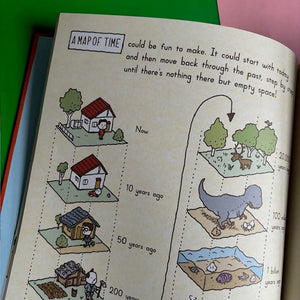 A MAP OF TIME could be fun to make. It could start with today
and then move back through the past, step by
until there's nothing there but empty space!
Now
10 years ago
50 years ago
200
20,
years
100
years
1 billion
years